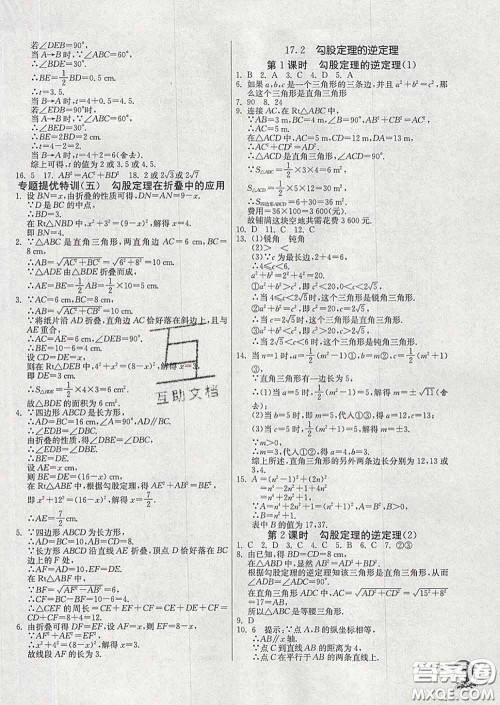 若∠DEB=90°,
当 A→B 时,∵∠AEC=90°,
∵∠ABC=60°,
∴∠BDE=30°,
∴BE=1/2BD=0.5 cm.
∴t=3.5.
当 B→A 时,t=4+0.5=4.5.
若∠EDB=90°时,
当 A→B 时,∵∠ABC=60°,
∴∠BED=30°,
∴BE=2BD=2 cm.
∴t=4-2=2.
当 B→A 时,t=4+2=6(舍去).
综上可得,t 的值为 2 或 3.5 或 4.5.
16. 5 17. AB²=AC²+BC² 18. 2 或 2√3 或 2√7
专题提优特训(五) 勾股定理在折叠中的应用
1. 设 BN=x,由折叠的性质可得,DN=AN=9-x.
∵D 是 BC 的中点,
∴BD=3.
在 Rt△NBD 中,x²+3²=(9-x)²,解得 x=4.
即 BN=4.
2. ∵△ABC 是直角三角形,两直角边 AC=6 cm,BC=8 cm,
∴AB=√(AC²+BC²)=√(6²+8²)=10 cm.
∵△ADE 由△BDE 折叠而成,
∴AE=BE=1/2AB=1/2×10=5 cm.
3. ∵AC=6 cm,BC=8 cm,
∴AB=10 cm.
∵将纸片沿 AD 折叠,直角边 AC 恰好落在斜边上,且与
AE 重合,
∴AC=AE=6 cm.
∴BE=10-6=4 cm.
设 CD=DE=x,
则在 Rt△DEB 中,4²+x²=(8-x)²,解得 x=3.
即 DE=3 cm.
∴S△BDE=1/2×4×3=6 cm².
故△BDE 的面积为 6 cm².
4. ∵四边形 ABCD 是长方形,
∴∠A=90°,AD∥BC.
∴∠EDB=∠DBC.
由折叠的性质,得∠EBD=∠DBC.
∴∠EDB=∠EBD.
∴BE=DE.
设 AE=x cm,
则 BE=DE=(16-x) cm.
在 Rt△ABE 中,根据勾股定理,得 AE²+AB²=BE²,
即 x²+12²=(16-x)²,解得 x=7/2.
∴AE=7/2 cm.
5. ∵四边形 ABCD 为长方形,
∴DC=AB=8,∠B=90°.
∵长方形 ABCD 沿直线 AE 折叠,顶点 D 恰好落在 BC
边上的 F 处,
∴AF=AD=10,DE=EF.
在 Rt△ABF 中,BF=√(AF²-AB²)=√(10²-8²)=6.
∴FC=BC-BF=10-6=4.
∴△CEF的周长=CE+EF+CF=CE+DE+CF=CD+
CF=8+4=12.
6. 由折叠可得 DF=EF,设 AF=x,则 EF=8-x.
∵AF²+AE²=EF²,
∴x²+4²=(8-x)²,解得 x=3.
故线段 AF 的长为 3.
17.2 勾股定理的逆定理
第 1 课时 勾股定理的逆定理(1)
1. B 2. A 3. C 4. D 5. A
6. 如果 a,b,c 是一个三角形的三条边,并且 a²+b²=c²,那
么这个三角形是直角三角形
7. 90 8. 24
9. 连接 AC,在 Rt△ABC 中,
∵AB=3 m,BC=4 m,∠B=90°,AB²+BC²=AC²,
∴AC=5 m.
在△ACD 中,AC=5 m,CD=12 m,DA=13 m,
∴AC²+CD²=AD².
∴△ACD 是直角三角形,∠ACD=90°.
∵S△ABC=1/2×3×4=6 m²,
S△ACD=1/2×5×12=30 m²,
∴S四边形ABCD=6+30=36 m².
费用=36×100=3 600(元).
故铺满这块空地共需花费 3 600 元.
10. D 11. C 12. C
13. (1)锐角 钝角
(2)> <
(3)∵c 为最长边,2+4=6,
∴4≤c<6.
a²+b²=2²+4²=20.
①a²+b²>c²,即 c²<20,0<c<2√5,
∴当 4≤c<2√5时,这个三角形是锐角三角形;
②a²+b²=c²,即 c²=20,c=2√5,
∴当 c=2√5时,这个三角形是直角三角形;
③a²+b²<c²,即 c²>20,c>2√5,
∴当 2√5<c<6 时,这个三角形是钝角三角形.
14. 当 n=1,a=1/2(m²-1)①,b=m②,c=1/2(m²+1)③,
∵直角三角形有一边长为 5,
∴(1)当 a=5 时,1/2(m²-1)=5,解得 m=±√11(舍去)
(2)当 b=5 时,即 m=5,代入①③,得 a=12,c=13.
(3)当 c=5 时,1/2(m²+1)=5,解得 m=±3,
∵m>0,
∴m=3,代入①②,得 a=4,b=3.
综上所述,直角三角形的另外两条边长分别为 12,13 或
3,4.
15. A=(n²-1)²+(2n)²
=n⁴-2n²+1+4n²
=n⁴+2n²+1
=(n²+1)².
表中 B 的值为 17,37.
第 2 课时 勾股定理的逆定理(2)
1. C 2. D 3. C 4. A 5. C 6. B 7. ②③
8. 由已知,得 BD=CD=8 cm,
在△ABD 中,显然 AB²=AD²+BD².
根据勾股定理的逆定理知该三角形是直角三角形,
∴∠ADB=∠ADC=90°.
在直角三角形 ADC 中,AC=√(AD²+CD²)=√(15²+8²)
=17=AB.
所以△ABC 是等腰三角形.
9. D
10. 6 提示:∵点 A,B 的纵坐标相等,
∴AB∥x 轴.
∴点 C 在平行于 AB 的两条直线上.
互助文档
答案圈
MXQE.COM